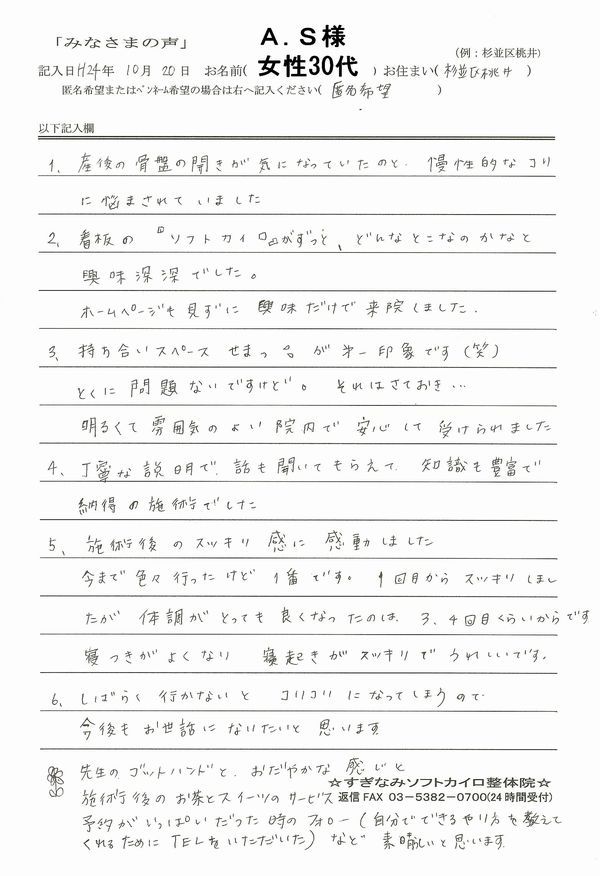 「みなさまの声」
A.S様
女性30代
(例：杉並区桃井)
記入日H24年 10月 20日 お名前( )お住まい(杉並区桃井)
匿名希望またはペンネーム希望の場合は右へ記入ください(匿名希望 )
以下記入欄
1、産後の骨盤の開きが気になっていたのと、慢性的なコリ
に悩まされていました
2、看板の『ソフトカイロ』がずっと、どんなとこなのかなと
興味深深でした。
ホームページも見ずに興味だけで来院しました。
3、持ち合いスペース せまっ!! が第一印象です(笑)
とくに問題ないですけど。それはさておき…
明るくて雰囲気のよい院内で安心して受けられました
4、丁寧な説明で、話も聞いてもらえて、知識も豊富で
納得の施術でした
5、施術後のスッキリ感に感動しました
今まで色々行ったけど1番です。1回目からスッキリしまし
たが 体調がとっても良くなったのは、3、4回目くらいからです
寝つきがよくなり 寝起きがスッキリでうれしいです。
6、しばらく行かないと コリコリになってしまうので
今後もお世話になりたいと思います
先生のゴットハンドと、おだやかな感じと
☆すぎなみソフトカイロ整体院☆
施術後のお茶とスイーツのサービス
返信FAX 03-5382-0700(24時間受付)
予約がいっぱいだった時のフォロー(自分でできるやり方を教えて
くれるためにTELをいただいた)など 素晴しいと思います。